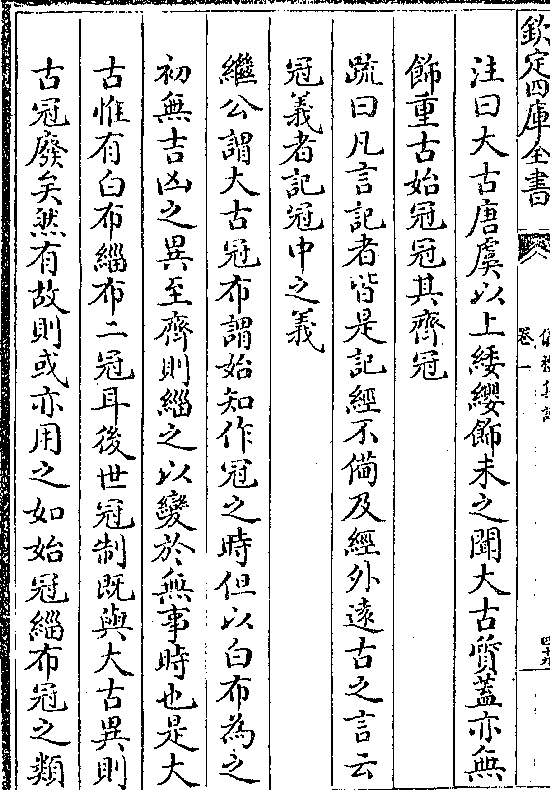 欽定四庫全書
卷一
注曰大古唐虞以上緌纓飾未之聞大古質葢亦無
飾重古始冠冠其齊冠
疏曰凡言記者皆是記經不備及經外遠古之言云
冠義者記冠中之義
繼公謂大古冠布謂始知作冠之時但以白布為之
初無吉凶之異至齊則緇之以變於無事時也是大
古惟有白布緇布二冠耳後世冠制既與大古異則
古冠廢矣然有故則或亦用之如始冠緇布冠之類